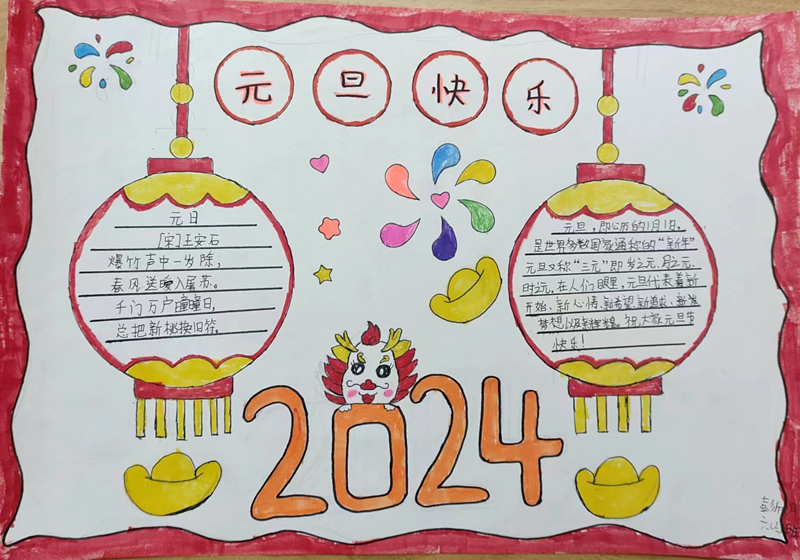 元旦快乐
元日
[宋]王安石
爆竹声中一岁除，
春风送暖入屠苏。
千门万户瞳瞳日，
总把新桃换旧符。
元旦，即公历的1月1日，
是世界多数国家通称的“新年”
元旦又称“三元”即岁之元、月之元、
时之元，在人们眼里，元旦代表着新
开始、新心情、新希望、新追求、新发
梦想以及新辉煌。祝大家元旦节
快乐！
2024